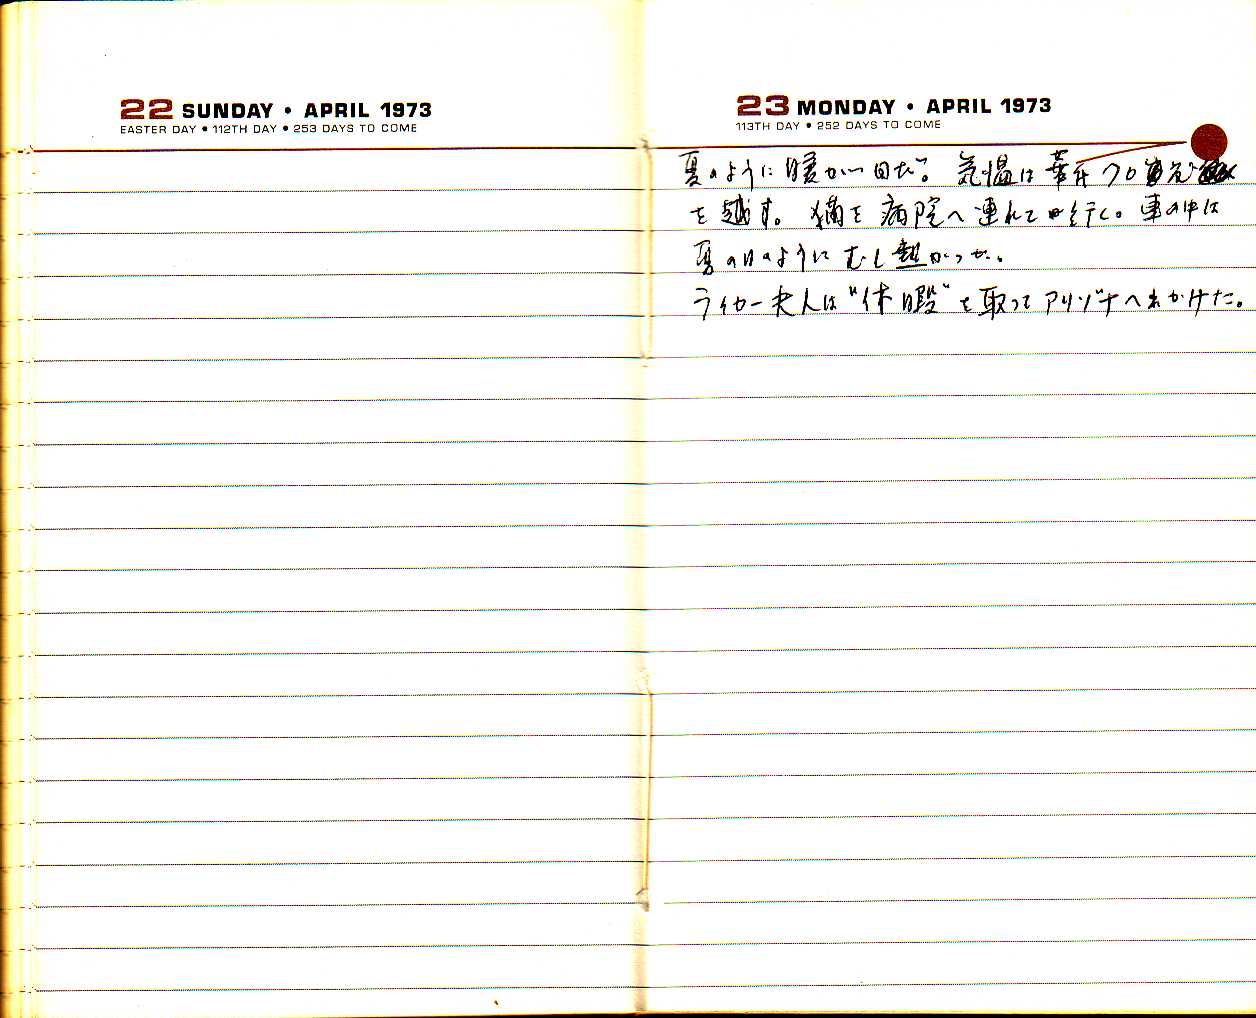 22 SUNDAY • APRIL 1973
EASTER DAY • 112TH DAY • 253 DAYS TO COME
23 MONDAY • APRIL 1973
113TH DAY • 252 DAYS TO COME
夏のように暖かい日だ。気温は華氏70
を越す。猫を病院へ連れて行く。車の中は
夏の日のようにむし熱かった。
ライカー夫人は"休暇"を取ってアリゾナへ出かけた。